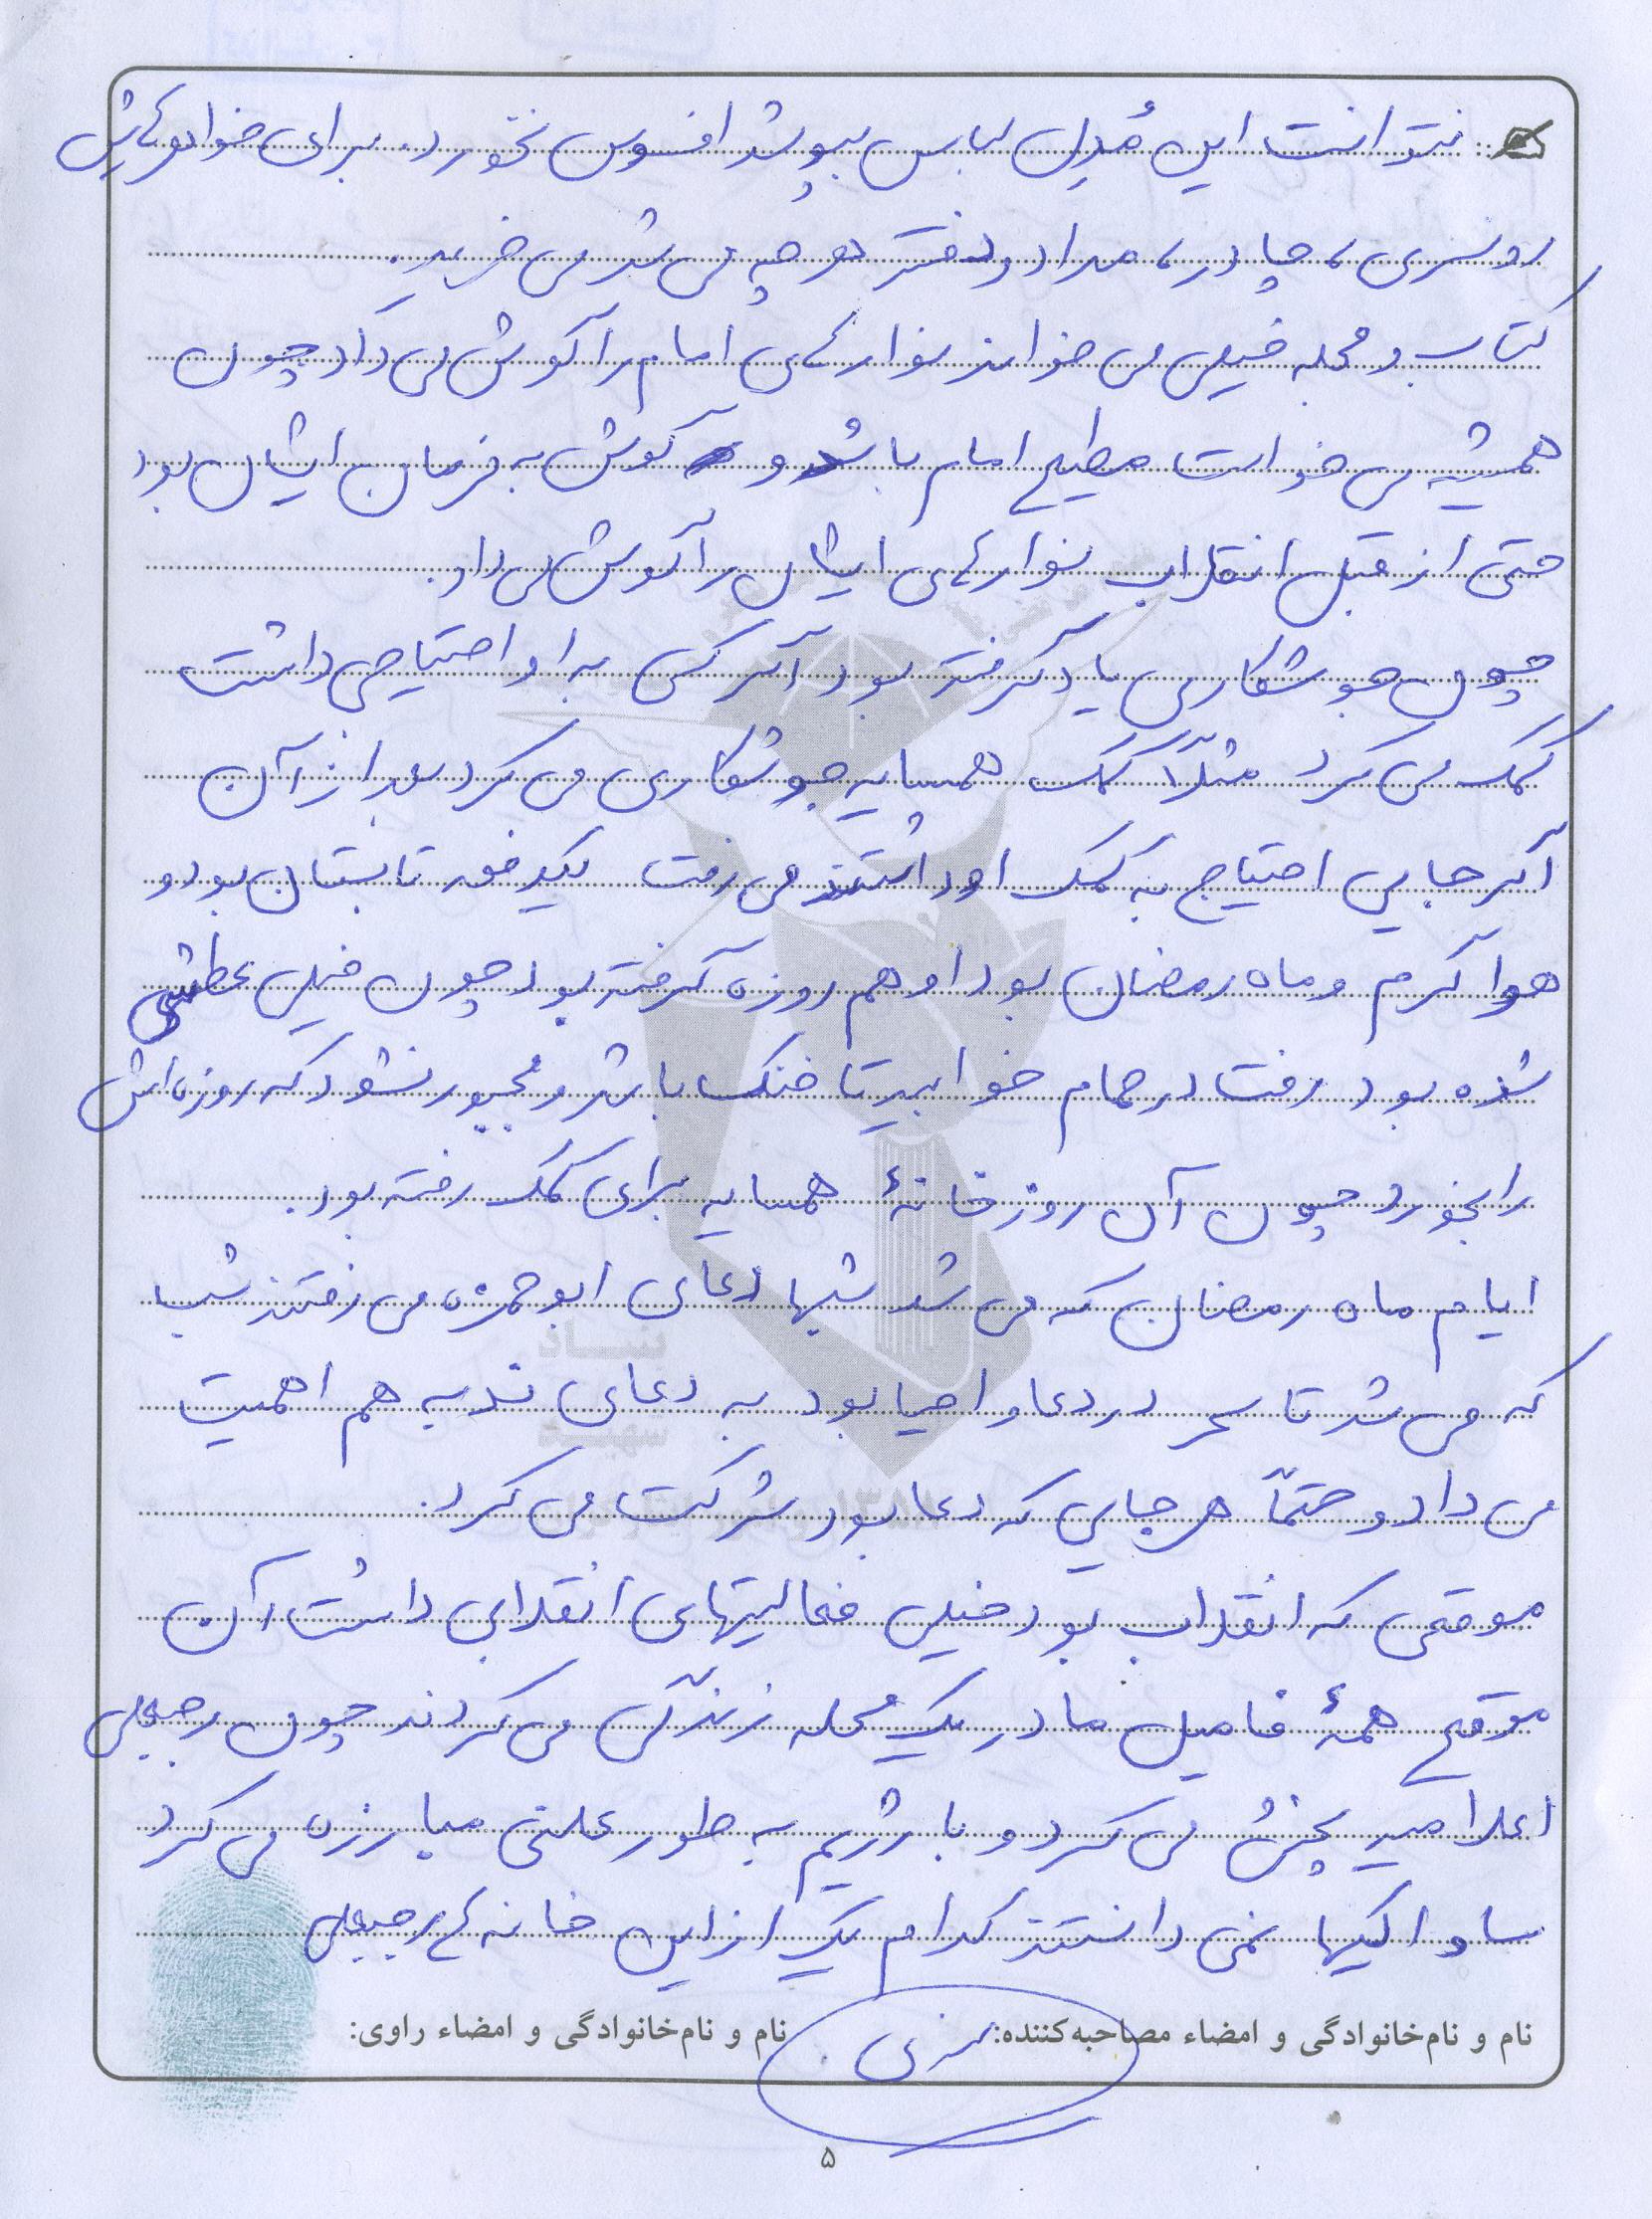 نتوانست این مُدل لباس بپوشد افسوس نخورد. برای خواهرهایش
روسری، چادر، مداد و دفتر هر چه می شد می خرید.
کتاب و مجله خیلی می خواند نوارهای امام را گوش می داد چون
همیشه می خواست مطیع امام باشد و گوش به فرمان ایشان بود
حتی از قبل انقلاب نوارهای ایشان را گوش می داد.
چون جوشکاری یاد گرفته بود اگر کسی به او احتیاجی داشت
کمک می کرد مثلاً کمک همسایه جوشکاری می کرد بعد از آن
اگر جایی احتیاج به کمک او داشتند می رفت یکدفعه تابستان بود و
هوا گرم و ماه رمضان بود او هم روزه گرفته بود چون خیلی عطشی
شده بود رفت در حمام خوابید تا خنک باشد و مجبور نشود که روزه اش
را بخورد چون آن روز خانهٔ همسایه برای کمک رفته بود.
ایام ماه رمضان که می شد شبها دعای ابوحمزه می رفتند شب
که می شد تا سحر در دعا و احیا بود به دعای ندبه هم اهمیت
می داد و حتماً هر جایی که دعا بود شرکت می کرد.
موقعی که انقلاب بود خیلی فعالیتهای انقلابی داشت آن
موقع همهٔ فامیل ما در یک محله زندگی می کردند چون رجبعلی
اعلامیه پخش می کرد و با رژیم به طور علنی مبارزه می کرد
ساواکیها نمی دانستند کدام یک از این خانه ها رجبعلی
نام و نام‌خانوادگی و امضاء مصاحبه‌کننده: نام و نام‌خانوادگی و امضاء راوی:
۵